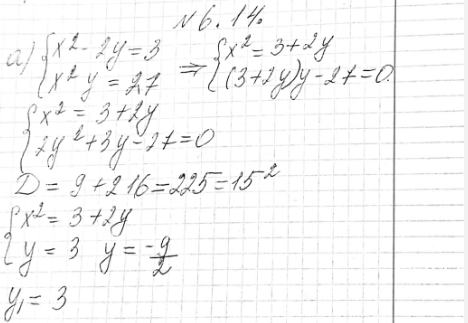 № 6.14.
а) { x² - 2y = 3 ⇒ { x² = 3 + 2y
{ x² y = 27 { (3+2y)y - 27 = 0.
{ x² = 3 + 2y
{ 2y² + 3y - 27 = 0
D = 9 + 216 = 225 = 15²
{ x² = 3 + 2y
{ y = 3 y = -9/2
y₁ = 3